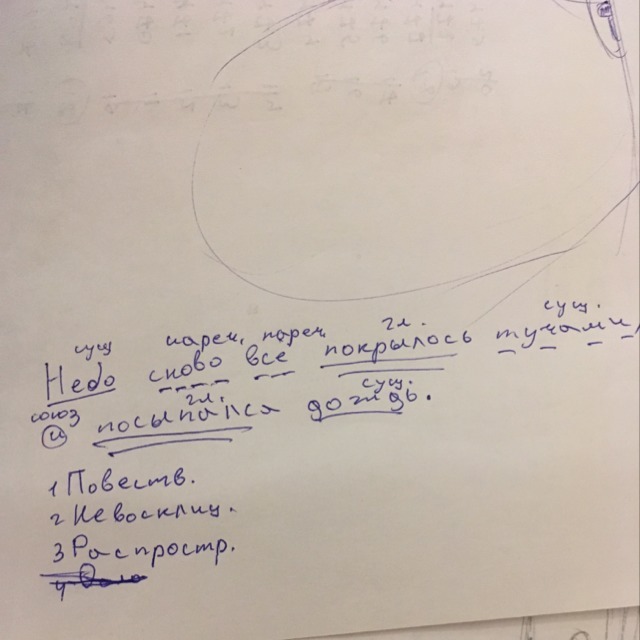 сущ нареч. нареч. гл. сущ.
Небо сново все покрылось тучами,
союз гл. сущ.
и посыпался дождь.
1 Повеств.
2 Невосклиц.
3 Распростр.